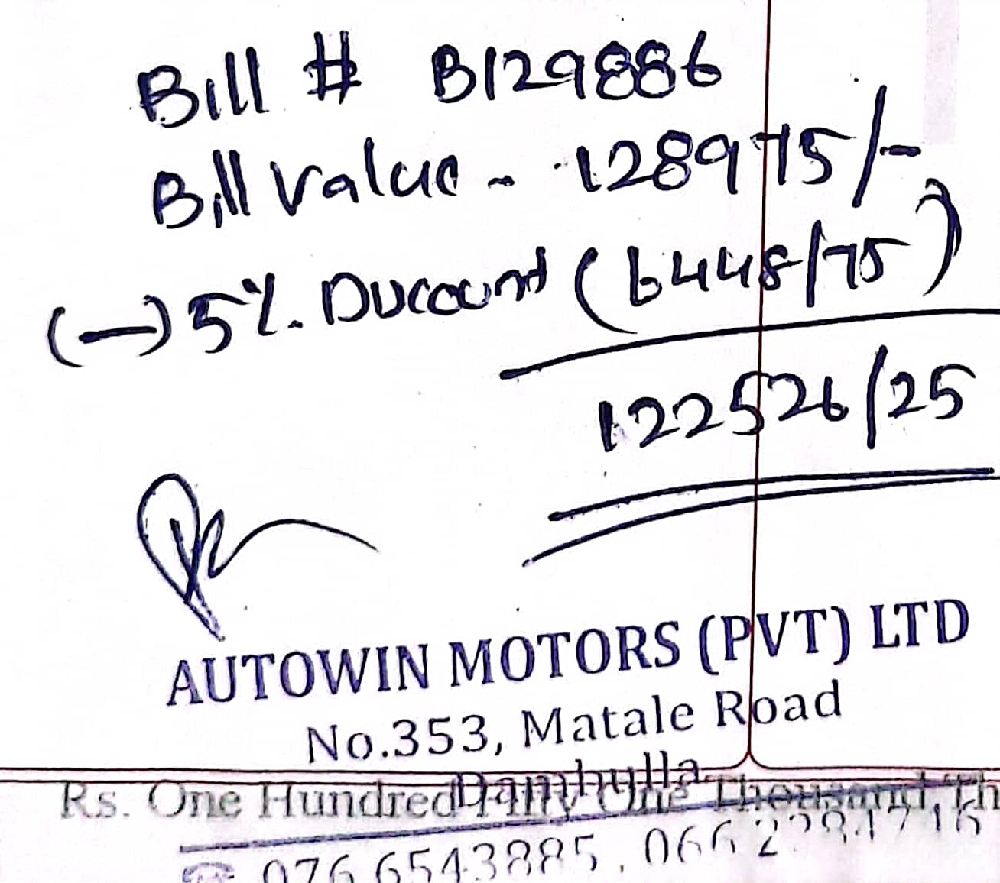 Bill # B129886
Bill value - 128975/-
(-) 5% Discount (6448/75)
122526/25
AUTOWIN MOTORS (PVT) LTD
No.353, Matale Road
Dambulla
Rs. One Hundred Fifty One Thousand, Th
076 6543885, 066 2284716